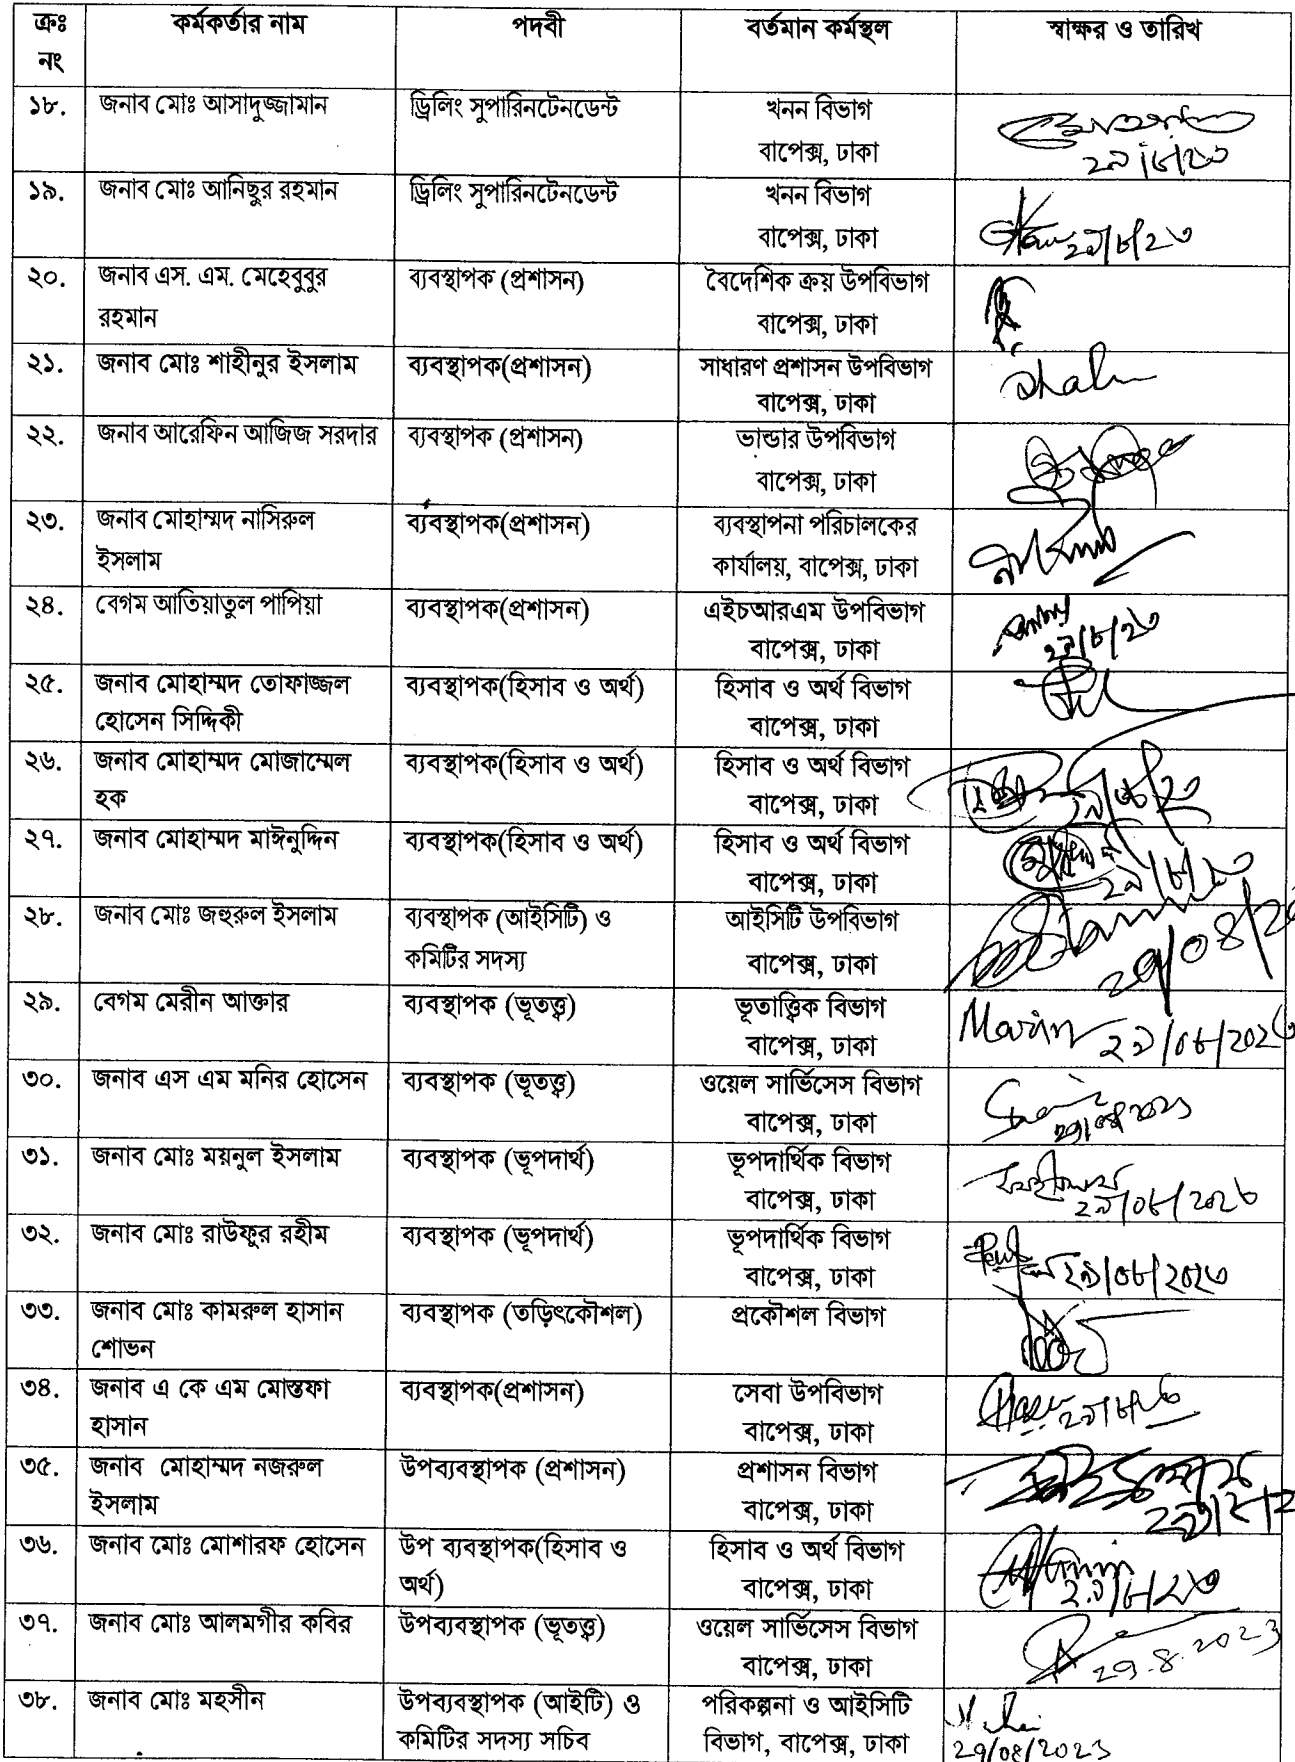 ক্রঃ নং কর্মকর্তার নাম পদবী বর্তমান কর্মস্থল স্বাক্ষর ও তারিখ
১৮. জনাব মোঃ আসাদুজ্জামান ড্রিলিং সুপারিনটেনডেন্ট খনন বিভাগ
বাপেক্স, ঢাকা
২৯/৮/২৩
১৯. জনাব মোঃ আনিছুর রহমান ড্রিলিং সুপারিনটেনডেন্ট খনন বিভাগ
বাপেক্স, ঢাকা ২৯/৮/২৩
২০. জনাব এস. এম. মেহেবুবুর ব্যবস্থাপক (প্রশাসন) বৈদেশিক ক্রয় উপবিভাগ
রহমান বাপেক্স, ঢাকা
২১. জনাব মোঃ শাহীনুর ইসলাম ব্যবস্থাপক(প্রশাসন) সাধারণ প্রশাসন উপবিভাগ
বাপেক্স, ঢাকা
২২. জনাব আরেফিন আজিজ সরদার ব্যবস্থাপক (প্রশাসন) ভান্ডার উপবিভাগ
বাপেক্স, ঢাকা
২৩. জনাব মোহাম্মদ নাসিরুল ব্যবস্থাপক(প্রশাসন) ব্যবস্থাপনা পরিচালকের
ইসলাম কার্যালয়, বাপেক্স, ঢাকা
২৪. বেগম আতিয়াতুল পাপিয়া ব্যবস্থাপক(প্রশাসন) এইচআরএম উপবিভাগ
বাপেক্স, ঢাকা ২৯/৮/২৩
২৫. জনাব মোহাম্মদ তোফাজ্জল ব্যবস্থাপক(হিসাব ও অর্থ) হিসাব ও অর্থ বিভাগ
হোসেন সিদ্দিকী বাপেক্স, ঢাকা
২৬. জনাব মোহাম্মদ মোজাম্মেল ব্যবস্থাপক(হিসাব ও অর্থ) হিসাব ও অর্থ বিভাগ
হক বাপেক্স, ঢাকা ২৯/৮/২৩
২৭. জনাব মোহাম্মদ মাঈনুদ্দিন ব্যবস্থাপক(হিসাব ও অর্থ) হিসাব ও অর্থ বিভাগ
বাপেক্স, ঢাকা ২৯/৮/২৩
২৮. জনাব মোঃ জহুরুল ইসলাম ব্যবস্থাপক (আইসিটি) ও আইসিটি উপবিভাগ
কমিটির সদস্য বাপেক্স, ঢাকা
২৯. বেগম মেরীন আক্তার ব্যবস্থাপক (ভূতত্ত্ব) ভূতাত্ত্বিক বিভাগ
বাপেক্স, ঢাকা ২৯/০৮/২০২৩
৩০. জনাব এস এম মনির হোসেন ব্যবস্থাপক (ভূতত্ত্ব) ওয়েল সার্ভিসেস বিভাগ
বাপেক্স, ঢাকা
৩১. জনাব মোঃ ময়নুল ইসলাম ব্যবস্থাপক (ভূপদার্থ) ভূপদার্থিক বিভাগ
বাপেক্স, ঢাকা ২৯/০৮/২০২৩
৩২. জনাব মোঃ রাউফুর রহীম ব্যবস্থাপক (ভূপদার্থ) ভূপদার্থিক বিভাগ
বাপেক্স, ঢাকা ২৯/০৮/২০২৩
৩৩. জনাব মোঃ কামরুল হাসান ব্যবস্থাপক (তড়িৎকৌশল) প্রকৌশল বিভাগ
শোভন
৩৪. জনাব এ কে এম মোস্তফা ব্যবস্থাপক(প্রশাসন) সেবা উপবিভাগ
হাসান বাপেক্স, ঢাকা ২৯/৮/২৩
৩৫. জনাব মোহাম্মদ নজরুল উপব্যবস্থাপক (প্রশাসন) প্রশাসন বিভাগ
ইসলাম বাপেক্স, ঢাকা
৩৬. জনাব মোঃ মোশারফ হোসেন উপ ব্যবস্থাপক(হিসাব ও হিসাব ও অর্থ বিভাগ
অর্থ) বাপেক্স, ঢাকা ২৯/৮/২৩
৩৭. জনাব মোঃ আলমগীর কবির উপব্যবস্থাপক (ভূতত্ত্ব) ওয়েল সার্ভিসেস বিভাগ
বাপেক্স, ঢাকা 29.8.2023
৩৮. জনাব মোঃ মহসীন উপব্যবস্থাপক (আইটি) ও পরিকল্পনা ও আইসিটি
কমিটির সদস্য সচিব বিভাগ, বাপেক্স, ঢাকা 29/08/2023